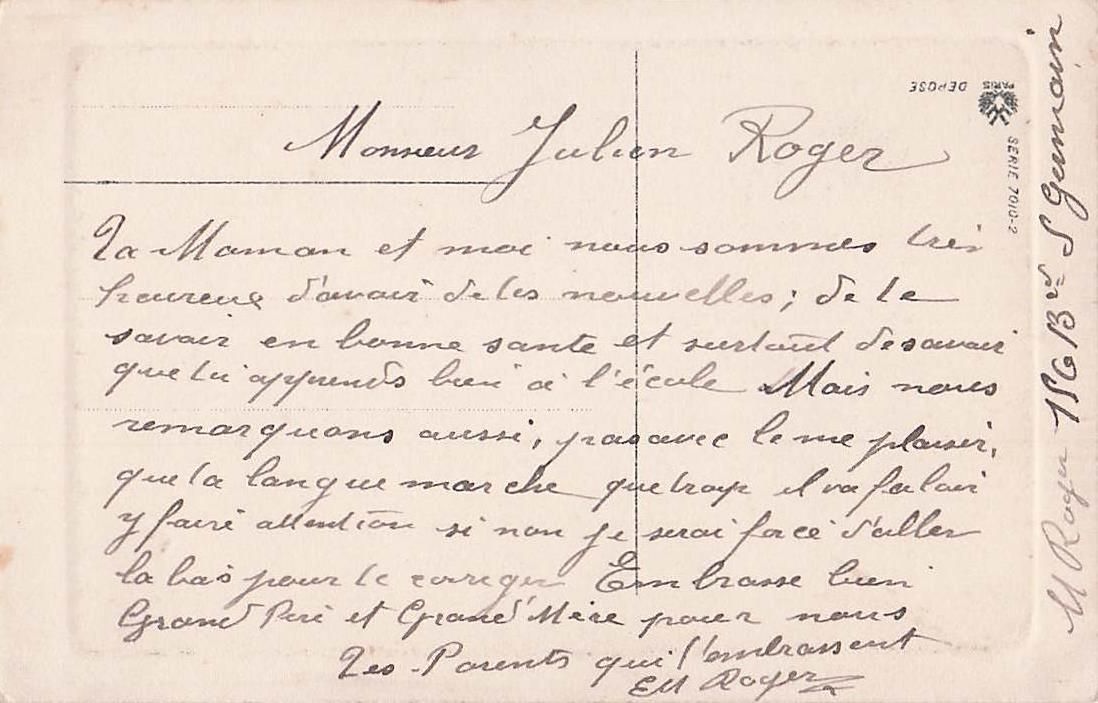 Monsieur Julien Roger
Ta Maman et moi nous sommes très
heureux d'avoir de tes nouvelles ; de te
savoir en bonne sante et surtout de savoir
que tu apprends bien à l'école Mais nous
remarquons aussi, pas avec le me plaisir,
que ta langue marche que trop il va faloir
y faire attention si non je serai forcé d'aller
la bas pour te corriger Embrasse bien
Grand Père et Grand'Mère pour nous
Tes Parents qui t'embrassent
EM Roger
M Roger 156 Bd St Germain
DÉPOSÉ
PARIS
SÉRIE 7010-2